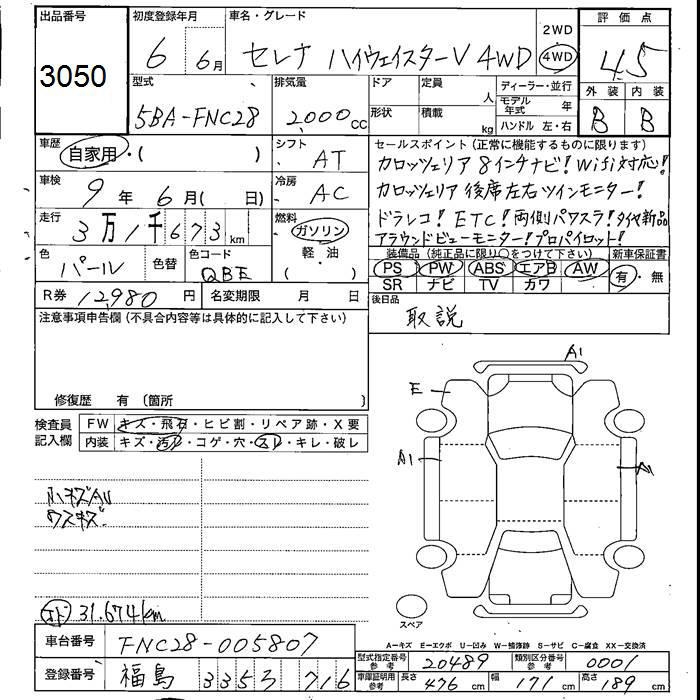 出品番号 初度登録年月 車名・グレード 2WD 評価点
3050 6 6月 セレナ ハイウェイスターV 4WD 4WD 4.5
型式 排気量 ドア 定員 人 ディーラー・並行 外装 内装
5BA-FNC28 2,000cc 形状 積載 kg モデル年式 年 B B
ハンドル 左・右
車歴 自家用・( ) シフト AT セールスポイント(正常に機能するものに限ります)
カロッツェリア 8インチナビ! Wifi対応!
車検 9年 6月( 日) 冷房 AC カロッツェリア 後席左右ツインモニター!
走行 3万1千673km 燃料 ガソリン ドラレコ! ETC! 両側パワスラ! タイヤ新品
アラウンドビューモニター! プロパイロット!
色 パール 色替 色コード QBE 軽・油 ( )
装備品(純正品に限り○をつけて下さい) 新車保証書
PS PW ABS エアB AW 有・無
SR ナビ TV カワ
R券 12,980円 名変期限 月 日 後日品
取説
注意事項申告欄(不具合内容等は具体的に記入して下さい)
修復歴 有(箇所 )
検査員記入欄 FW キズ・飛石・ヒビ割・リペア跡・X要
内装 キズ・汚レ・コゲ・穴・スレ・キレ・破レ
A1
E
A1
小キズAU
ウスキズ
31.674km
スペア
A−キズ E−エクボ U−凹み W−補修跡 S−サビ C−腐食 XX−交換済
車台番号 FNC28-005807
型式指定番号参考 20489 類別区分番号参考 0001
登録番号 福島 335 3 716
車庫証明用参考 長さ 476cm 幅 171cm 高さ 189cm